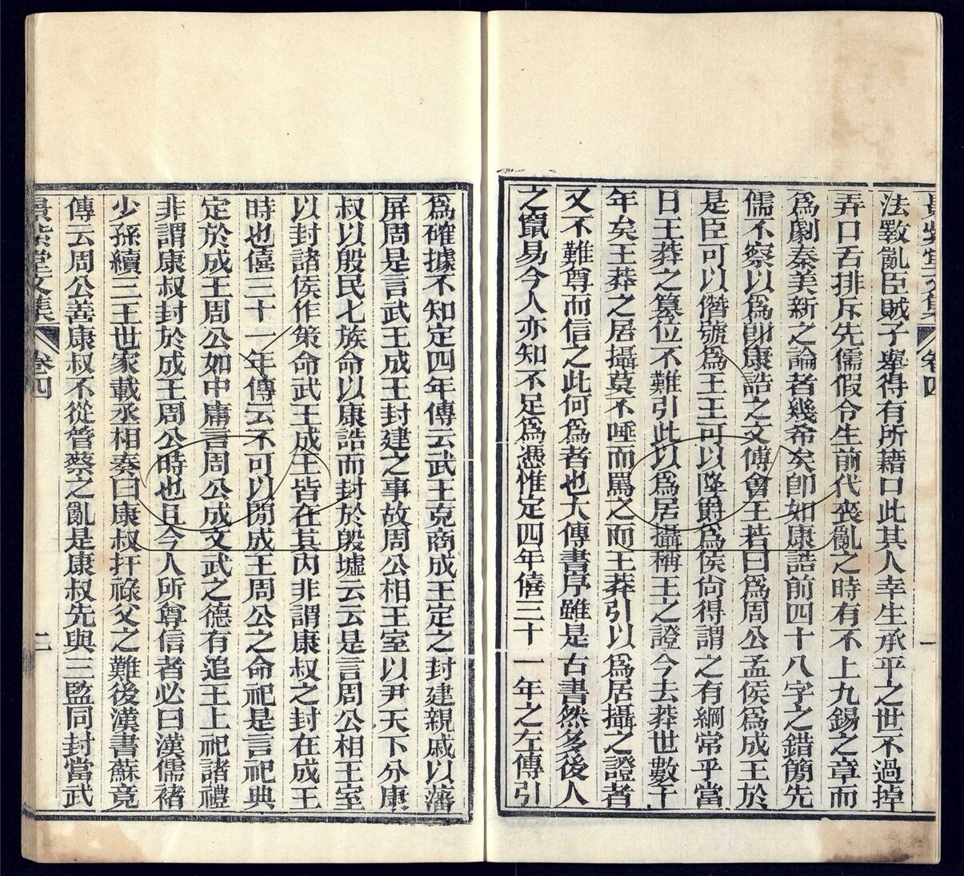 景紫堂文集 卷四 一
法斁亂臣賊子舉得有所藉口此其人幸生承平之世不過掉
弄口舌排斥先儒假令生前代喪亂之時有不上九錫之章而
爲劇秦美新之論者幾希矣卽如康誥前四十八字之錯簡先
儒不察以爲卽康誥之文傅會王若曰爲周公孟侯爲成王於
是臣可以僭號爲王王可以降爵爲侯尙得謂之有綱常乎當
日王莽之簒位不難引此以爲居攝稱王之證今去莽世數千
年矣王莽之居攝莫不唾而罵之而王莽引以爲居攝之證者
又不難尊而信之此何爲者也大傳書序雖是古書然多後人
之竄易今人亦知不足爲憑惟定四年僖三十一年之左傳引
爲確據不知定四年傳云武王克商成王定之封建親戚以藩
屏周是言武王成王封建之事故周公相王室以尹天下分康
叔以殷民七族命以康誥而封於殷墟云云是言周公相王室
以封諸侯作策命武王成王皆在其內非謂康叔之封在成王
時也僖三十一年傳云不可以閒成王周公之命祀是言祀典
定於成王周公如中庸言周公成文武之德有追王上祀諸禮
非謂康叔封於成王周公時也且今人所尊信者必曰漢儒褚
少孫續三王世家載丞相奏曰康叔扞祿父之難後漢書蘇竟
傳云周公善康叔不從管蔡之亂是康叔先與三監同封當武
景紫堂文集 卷四 二